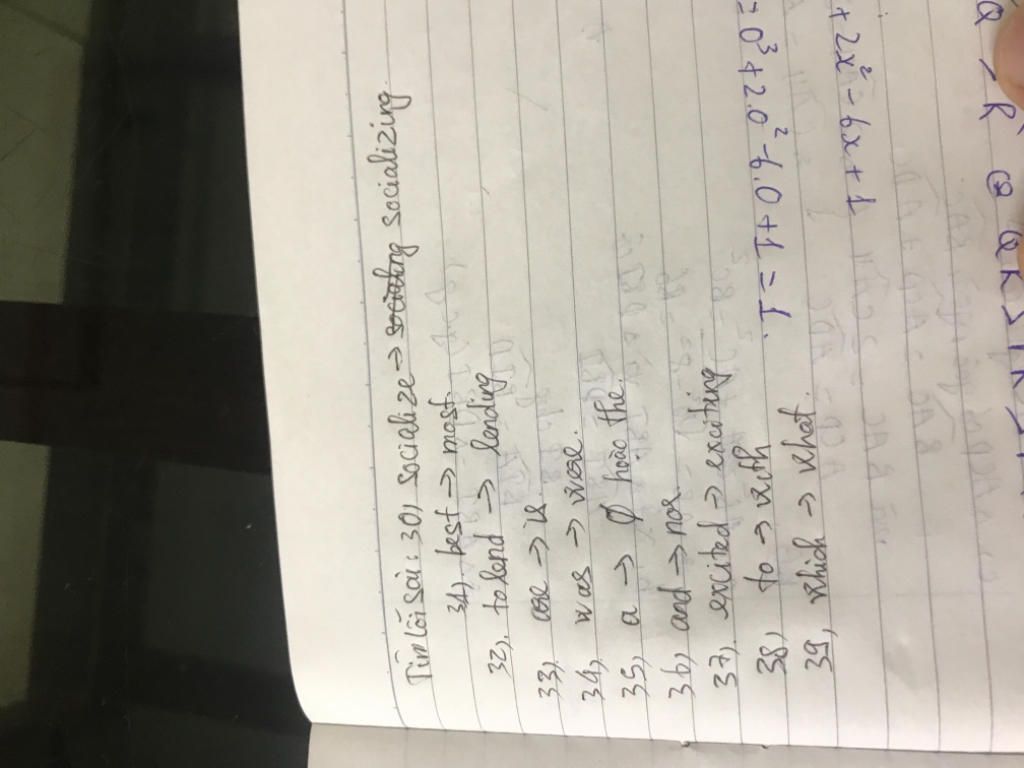 Tìm lỗi sai: 30, socialize → socializing
31, best → most.
32, to lend → lending
33, are → is
34, was → were.
35, a → Ø hoặc the.
36, and → nor
37, excited → exciting
38, to → with
39, which → what.
= 0³ + 2.0² - 6.0 + 1 = 1.
+ 2x² - 6x + 1